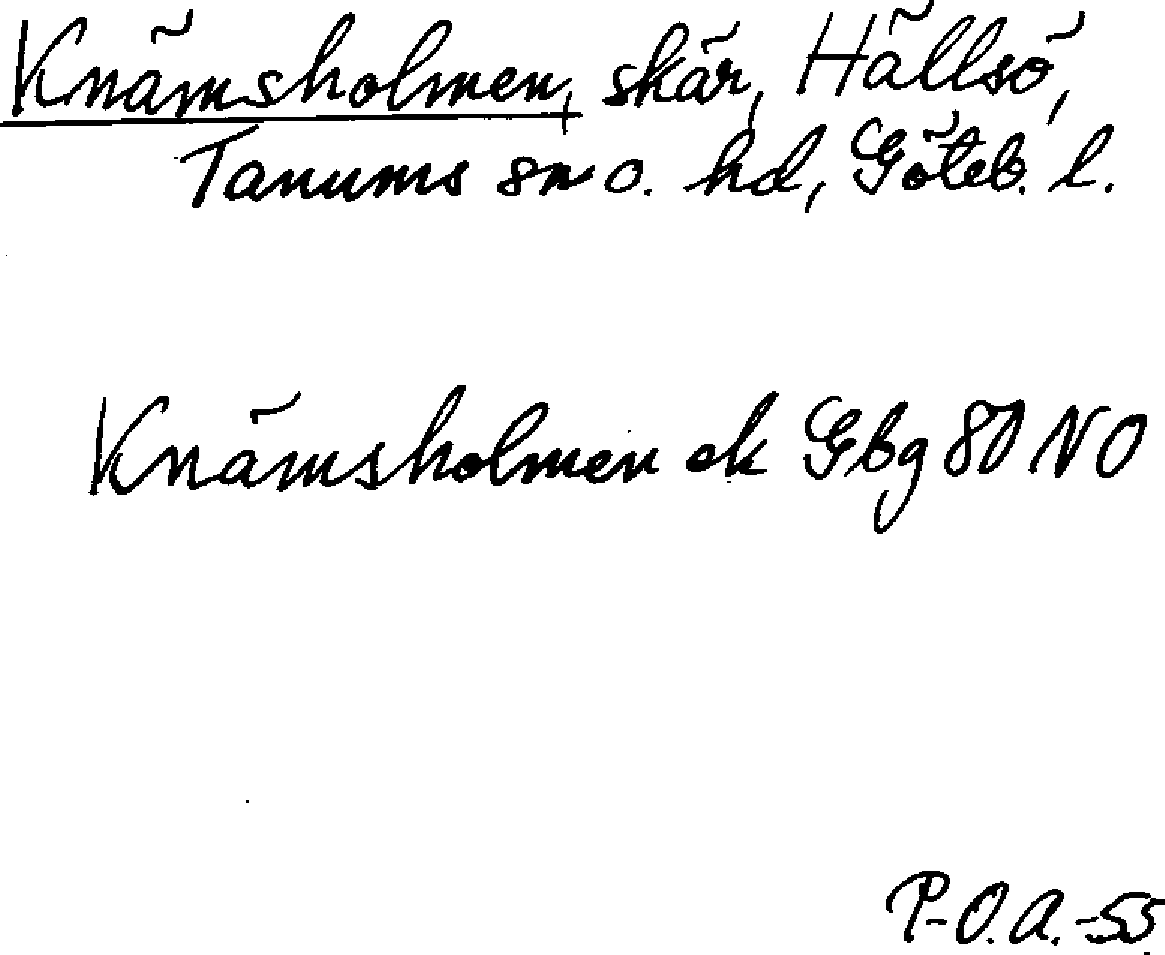 Knämsholmen, skär, Hällsö,
Tanums sn o. hd, Göteb. l.
Knämsholmen ek Gbg 80 NO
P-O.A.-55